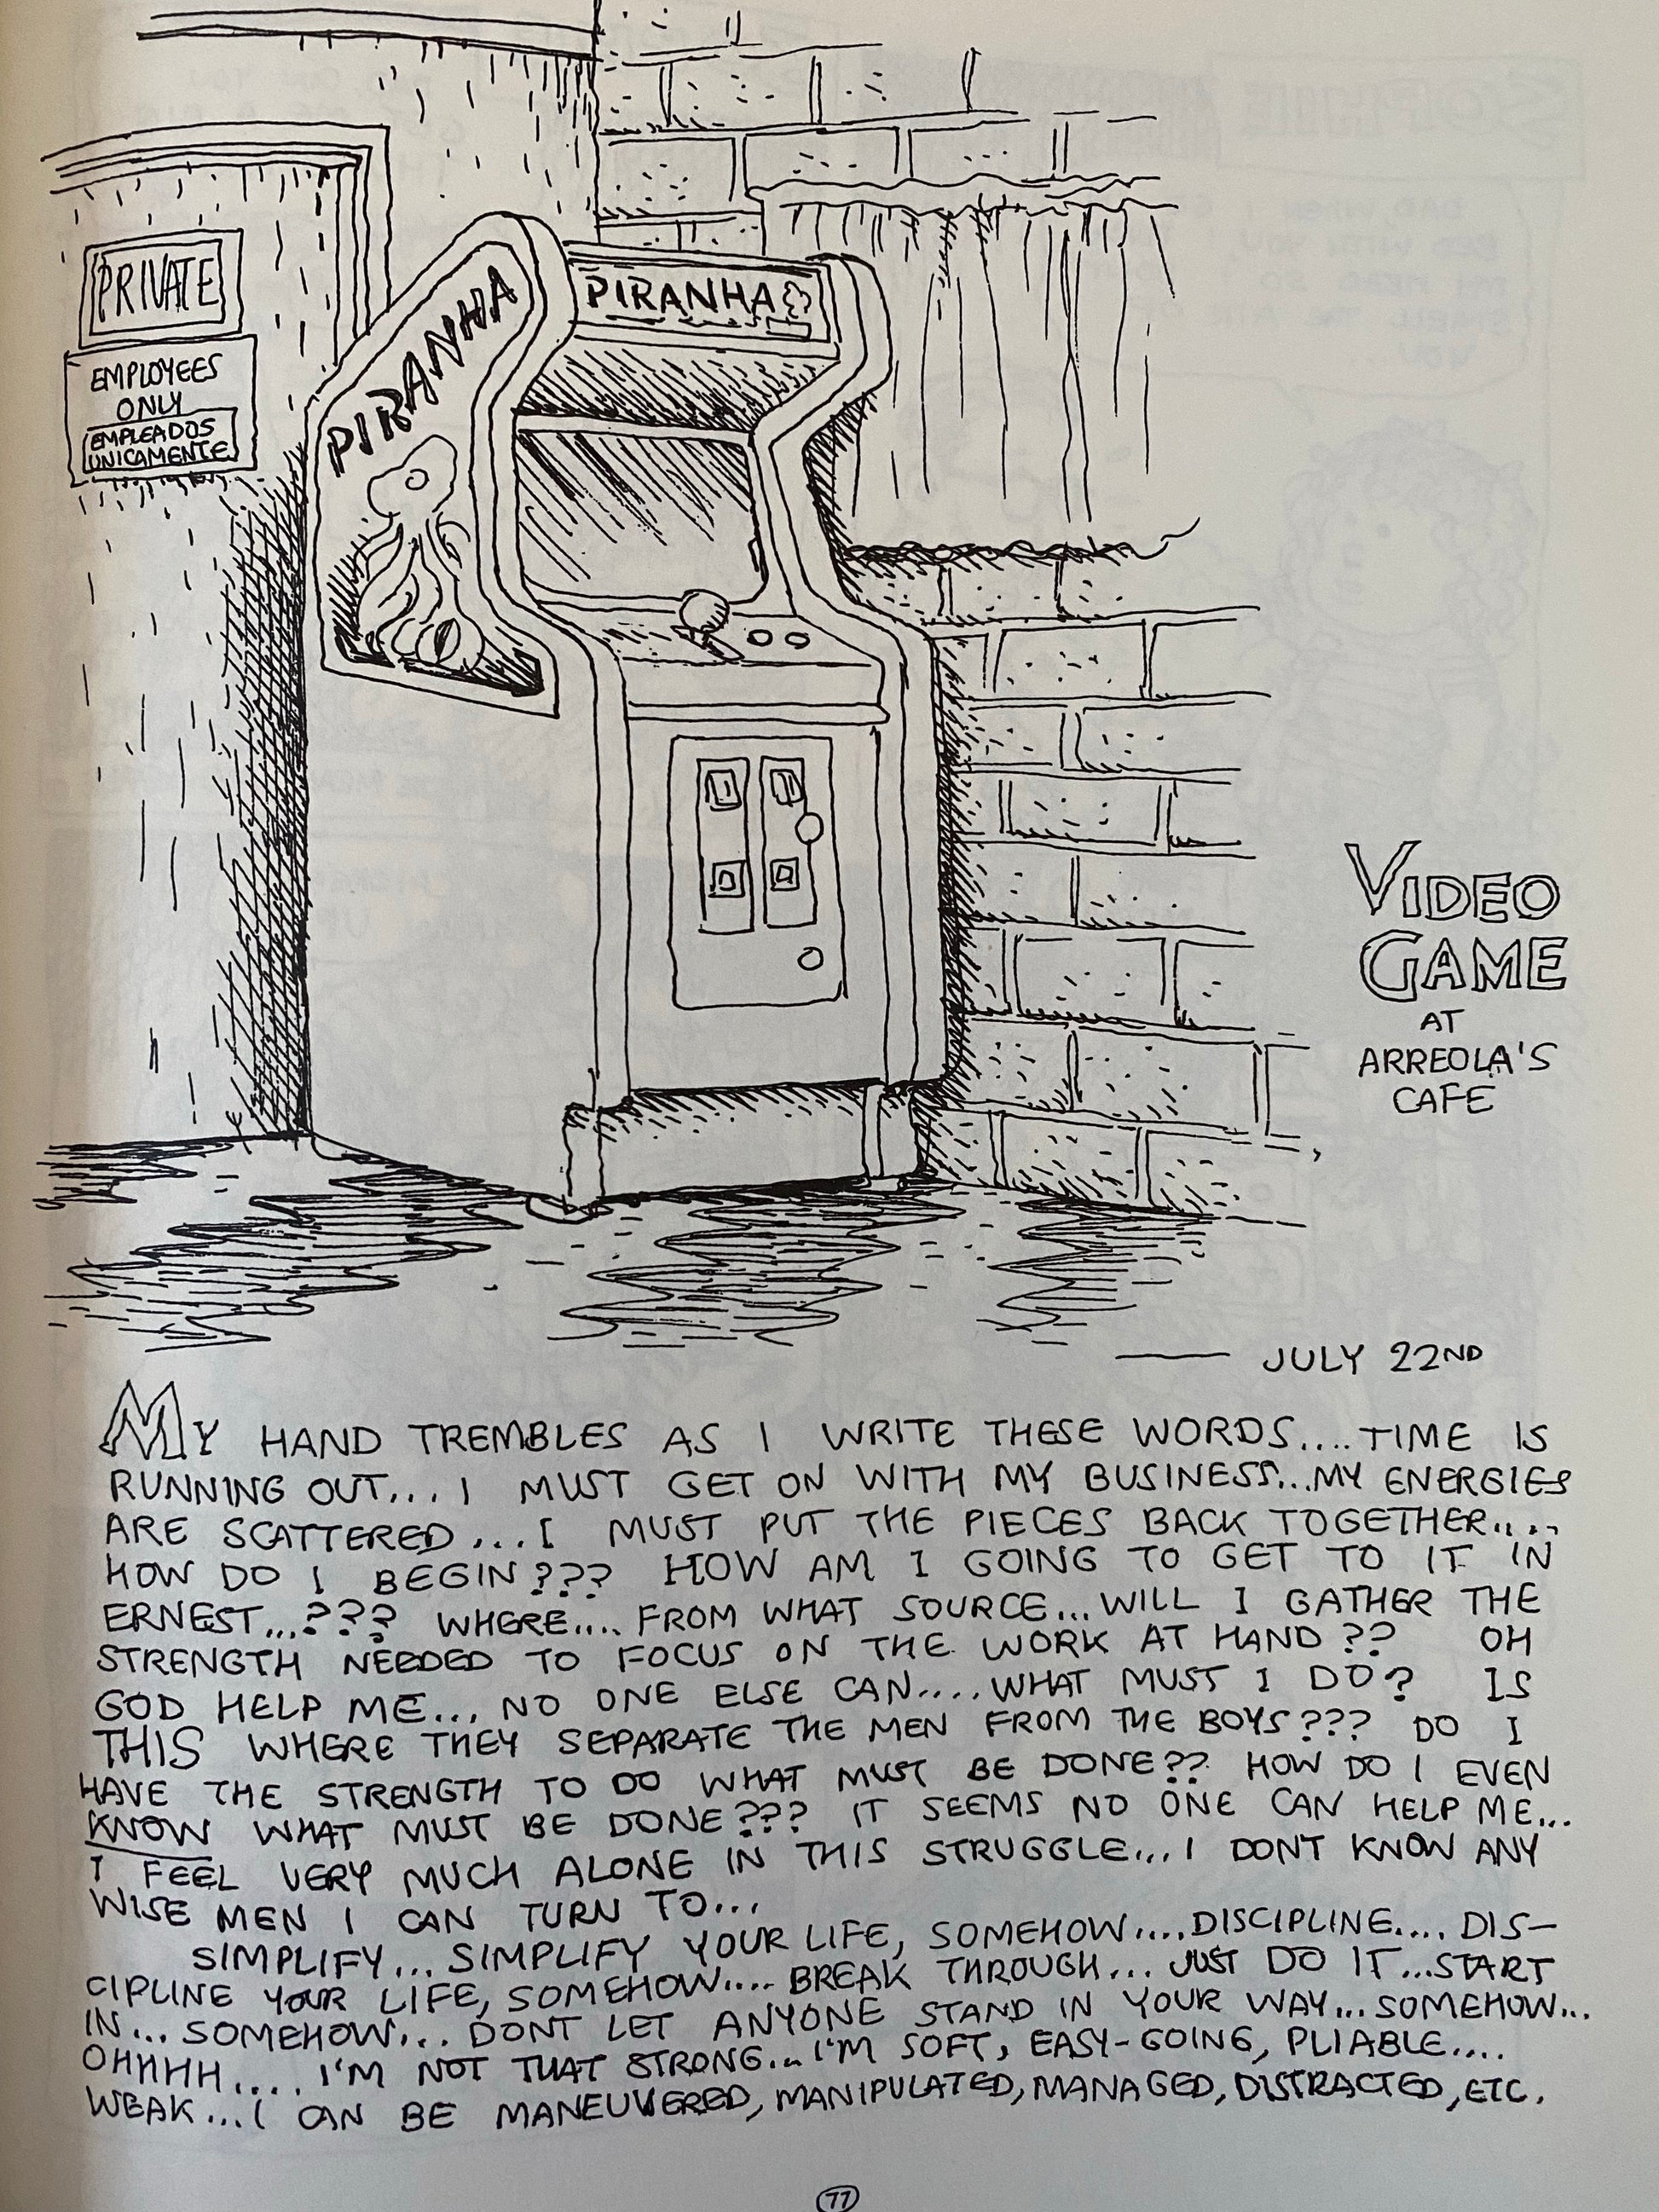 PRIVATE
EMPLOYEES
ONLY
EMPLEADOS
UNICAMENTE
PIRANHA
PIRANHA
VIDEO
GAME
AT
ARREOLA'S
CAFE
— JULY 22ND
MY HAND TREMBLES AS I WRITE THESE WORDS.... TIME IS
RUNNING OUT... I MUST GET ON WITH MY BUSINESS...MY ENERGIES
ARE SCATTERED...I MUST PUT THE PIECES BACK TOGETHER....
HOW DO I BEGIN??? HOW AM I GOING TO GET TO IT IN
ERNEST...??? WHERE.... FROM WHAT SOURCE...WILL I GATHER THE
STRENGTH NEEDED TO FOCUS ON THE WORK AT HAND?? OH
GOD HELP ME... NO ONE ELSE CAN....WHAT MUST I DO? IS
THIS WHERE THEY SEPARATE THE MEN FROM THE BOYS??? DO I
HAVE THE STRENGTH TO DO WHAT MUST BE DONE?? HOW DO I EVEN
KNOW WHAT MUST BE DONE??? IT SEEMS NO ONE CAN HELP ME...
I FEEL VERY MUCH ALONE IN THIS STRUGGLE...I DONT KNOW ANY
WISE MEN I CAN TURN TO...
SIMPLIFY... SIMPLIFY YOUR LIFE, SOMEHOW....DISCIPLINE.... DIS-
CIPLINE YOUR LIFE, SOMEHOW.... BREAK THROUGH... JUST DO IT...START
IN... SOMEHOW... DONT LET ANYONE STAND IN YOUR WAY...SOMEHOW...
OHHHH.... I'M NOT THAT STRONG... I'M SOFT, EASY-GOING, PLIABLE....
WEAK...I CAN BE MANEUVERED, MANIPULATED, MANAGED, DISTRACTED, ETC.
77